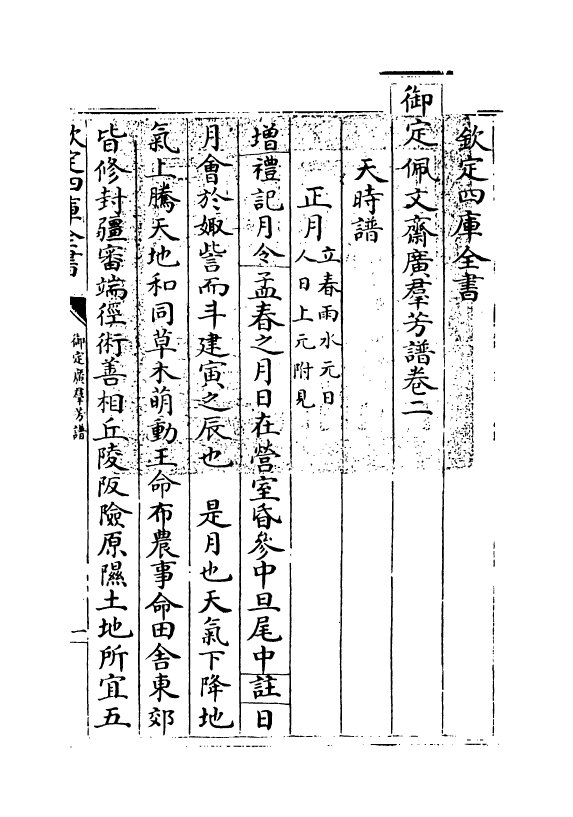 欽定四庫全書
御定佩文齋廣羣芳譜卷二
天時譜
正月立春雨水元日
人日上元附見
增禮記月令孟春之月日在營室昏參中旦尾中註日
月會於娵訾而斗建寅之辰也 是月也天氣下降地
氣上騰天地和同草木萌動王命布農事命田舍東郊
皆修封疆審端徑術善相丘陵阪險原隰土地所宜五
欽定四庫全書
御定廣羣芳譜
一